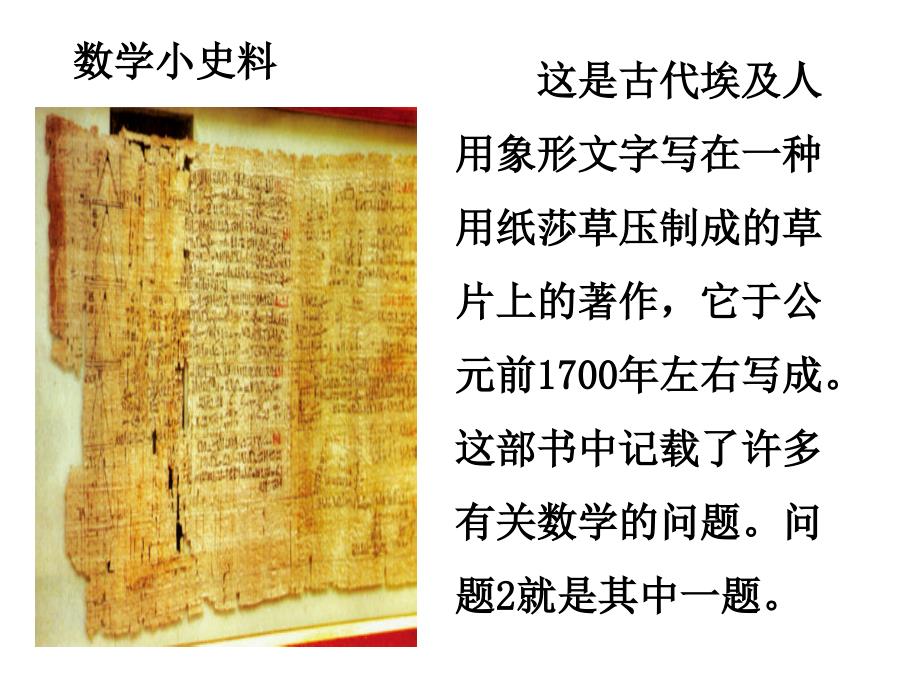 数学小史料
这是古代埃及人
用象形文字写在一种
用纸莎草压制成的草
片上的著作，它于公
元前1700年左右写成。
这部书中记载了许多
有关数学的问题。问
题2就是其中一题。